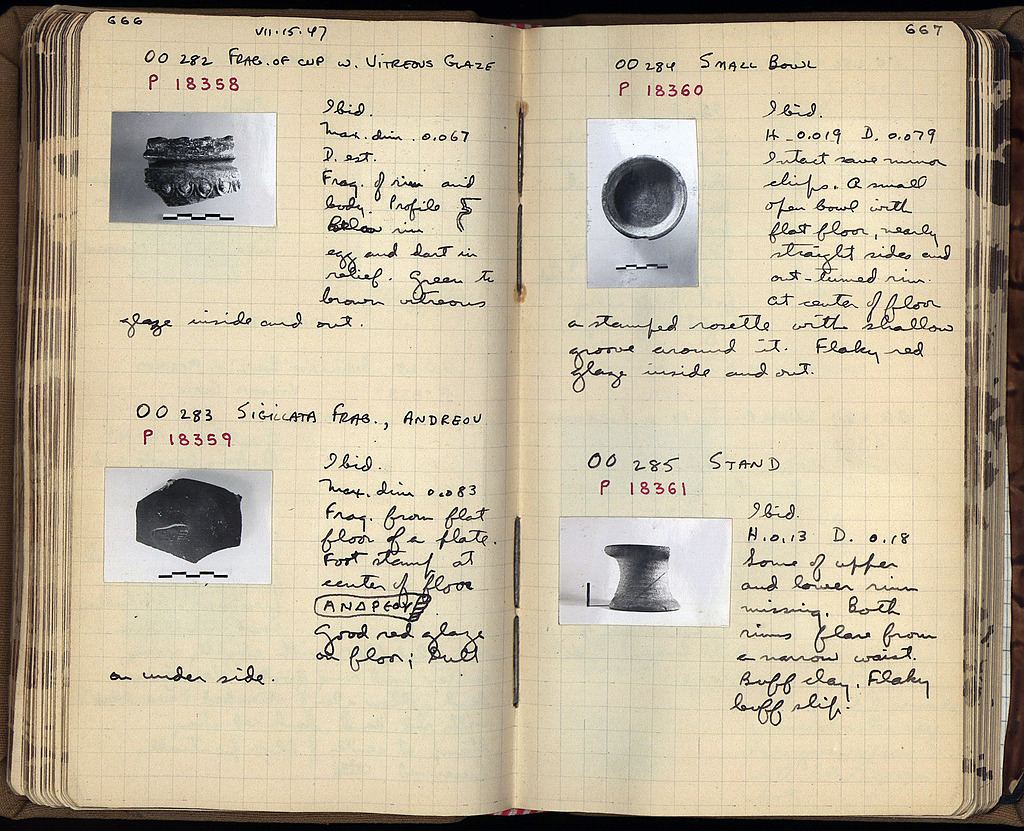 666
VII.15.47
OO 282 FRAG. OF CUP W. VITREOUS GLAZE
P 18358
Ibid.
Max. dim. 0.067
D. est.
Frag. of rim and
body. Profile
Below rim
egg and dart in
relief. Green to
brown vitreous
glaze inside and out.
OO 283 SIGILLATA FRAG., ANDREOU
P 18359
Ibid.
Max. dim 0.083
Frag. from flat
floor of a plate.
Foot stamp at
center of floor
ΑΝΔΡΕΟΥ
Good red glaze
on floor; dull
on under side.
667
OO 284 SMALL BOWL
P 18360
Ibid.
H - 0.019 D. 0.079
Intact save minor
chips. A small
open bowl with
flat floor, nearly
straight sides and
out-turned rim.
At center of floor
a stamped rosette with shallow
groove around it. Flaky red
glaze inside and out.
OO 285 STAND
P 18361
Ibid.
H. 0.13 D. 0.18
Some of upper
and lower rim
missing. Both
rims flare from
a narrow waist.
Buff clay. Flaky
buff slip.